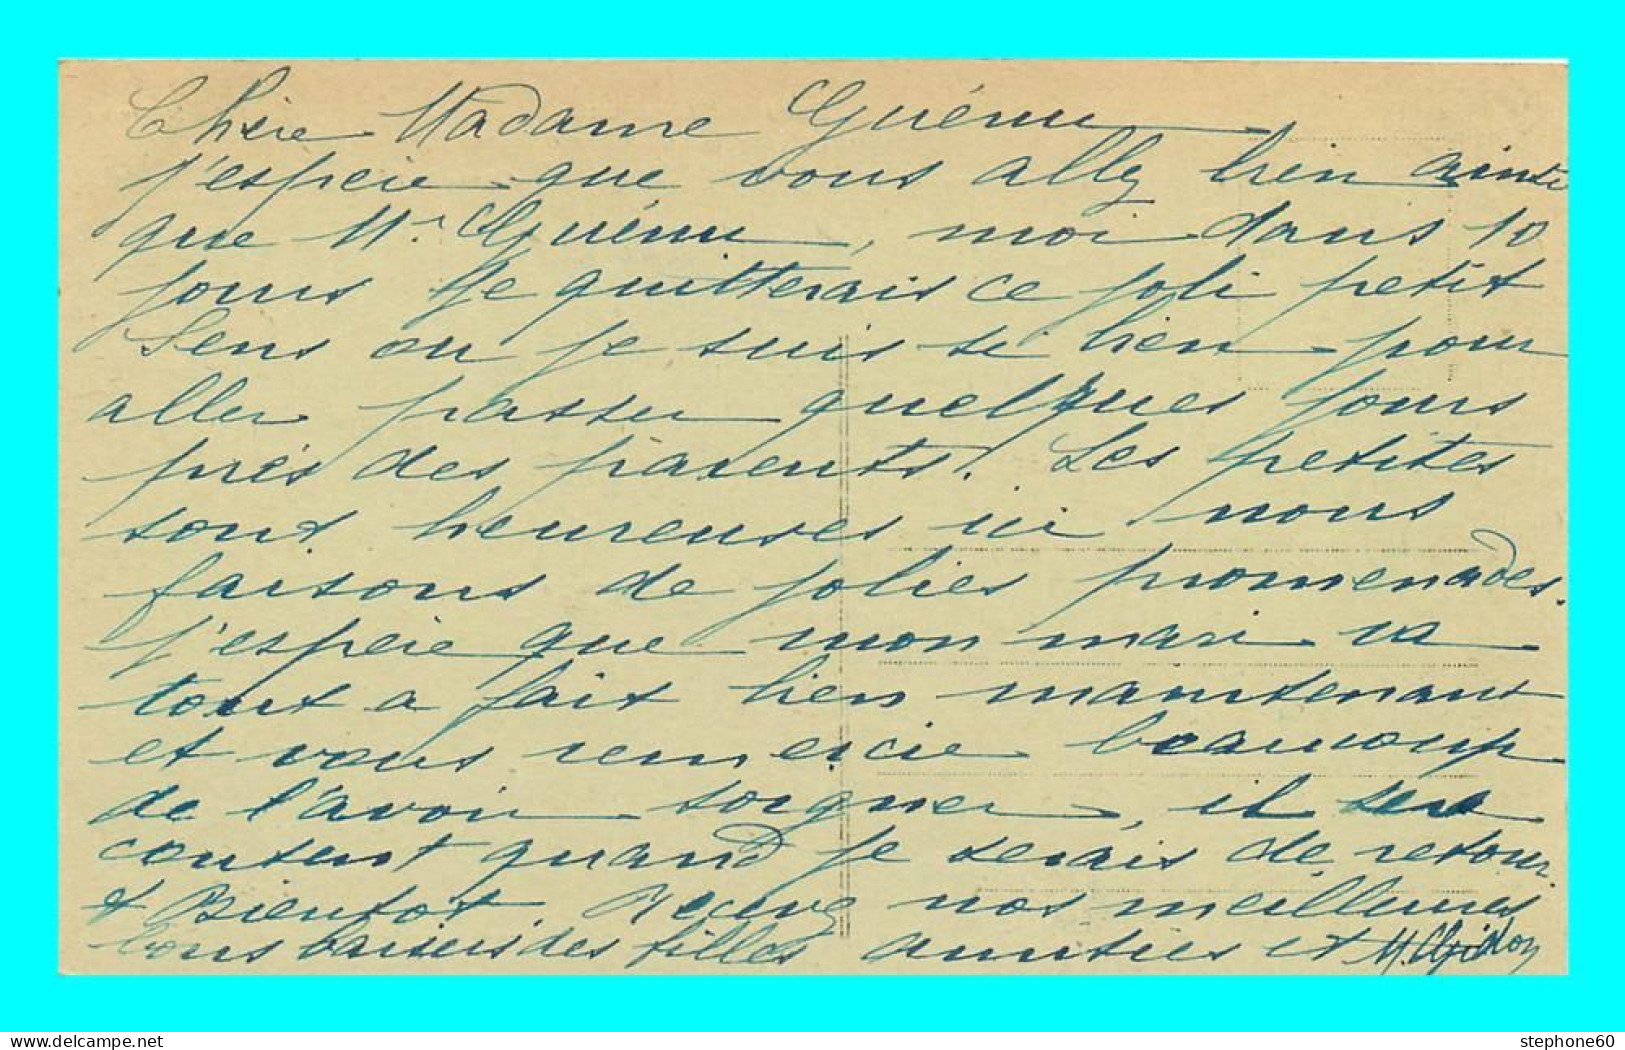 Chère Madame Guénu
j'espère que vous allez bien ainsi
que Mr Guénu, moi dans 10
jours je quitterais ce joli petit
Sens ou je suis si bien pour
aller passer quelques jours
près des parents. Les petites
sont heureuses ici nous
faisons de jolies promenades.
j'espère que mon mari va
tout a fait bien maintenant
et vous remercie beaucoup
de l'avoir soigner, il sera
content quand je serais de retour
et Bientot. Recevez nos meilleures
bons baisers des filles amitiés et M.
delcampe.net
stephone60